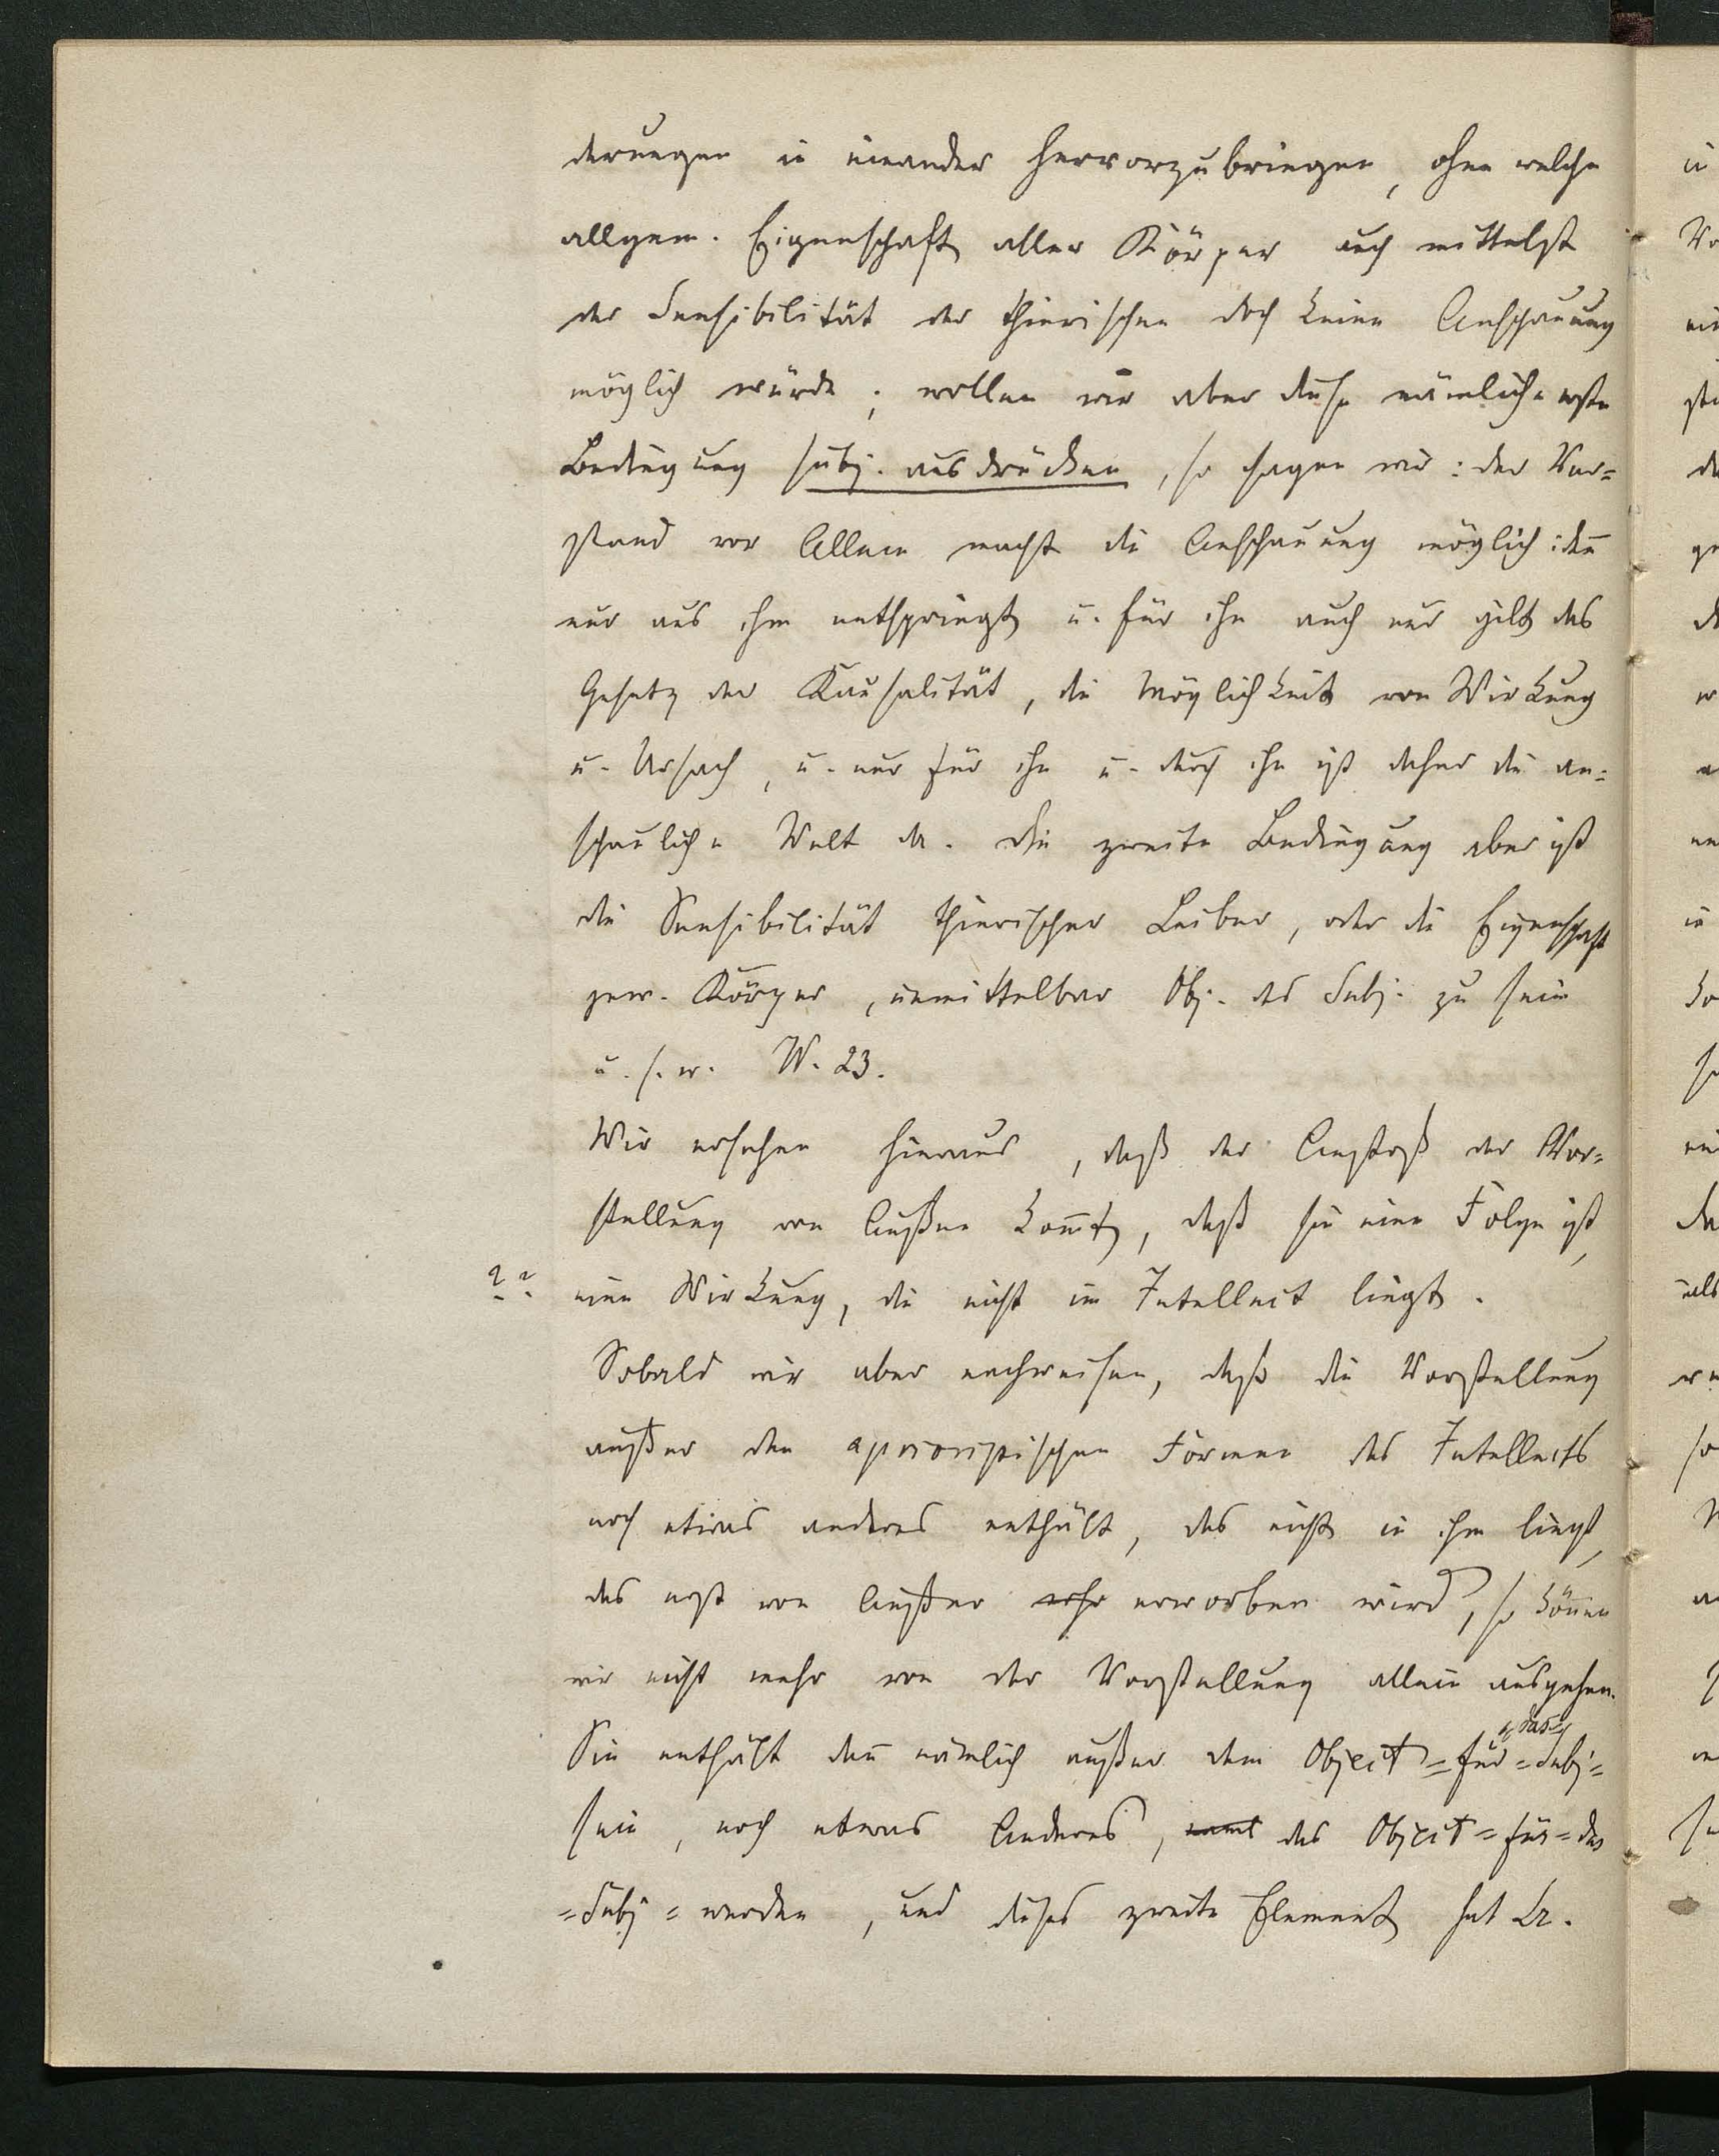 derungen in einander hervorzubringen, ohne welche
allgem. Eigenschaft aller Körper auch mittelst
der Sensibilität der thierischen doch keine Anschauung
möglich würde; wollen wir aber diese nämliche erste
Bedingung subj. ausdrücken, so sagen wir: der Ver=
stand vor Allem macht die Anschauung möglich: den̄
nur aus ihm entspringt u. für ihn auch nur gilt das
Gesetz der Kausalität, die Möglichkeit von Wirkung
u. Ursach, u. nur für ihn u. durch ihn ist daher die an=
schauliche Welt da. Die zweite Bedingung aber ist
die Sensibilität thierischer Leiber, oder die Eigenschaft
gew. Körper, unmittelbar Obj. des Subj. zu sein
u. s. w. W. 23.
Wir ersehen hieraus, daß der Anstoß der Vor=
stellung von Außen kom̄t, daß sie eine Folge ist,
?? eine Wirkung, die nicht im Intellect liegt.
Sobald wir aber nachweisen, daß die Vorstellung
außer den aprioristischen Formen des Intellects
noch etwas anderes enthält, das nicht in ihm liegt,
das erst von Außen erworben wird, so kön̄en
wir nicht mehr von der Vorstellung allein ausgehen.
Sie enthält den̄ nämlich außer dem Object=für=das=Subj=
sein, noch etwas Anderes, das Object=für=das
=Subj=werden, und dieses zweite Element hat